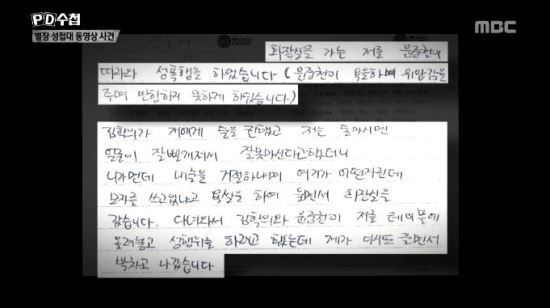 PD수첩
별장 성접대 동영상 사건
MBC
화장실을 가는 저를 윤중천이
따라와 성폭행을 하였습니다 (윤중천이 욕을하며 위압감을
주며 반항하지 못하게 하였습니다.)
김학의가 저에게 술을 권했고 저는 술마시면
얼굴이 잘빨개져서 잘못마신다고했더니
니가뭔데 내술을 거절하냐며 여기가 어떤자린데
모자를 쓰고있냐고 욕설을 하여 화장실을
갔습니다. 다녀와서 김학의와 윤중천이 저를 테이블에
올려놓고 성행위를 하려고 했는데 제가 다시또 울면서
박차고 나갔습니다